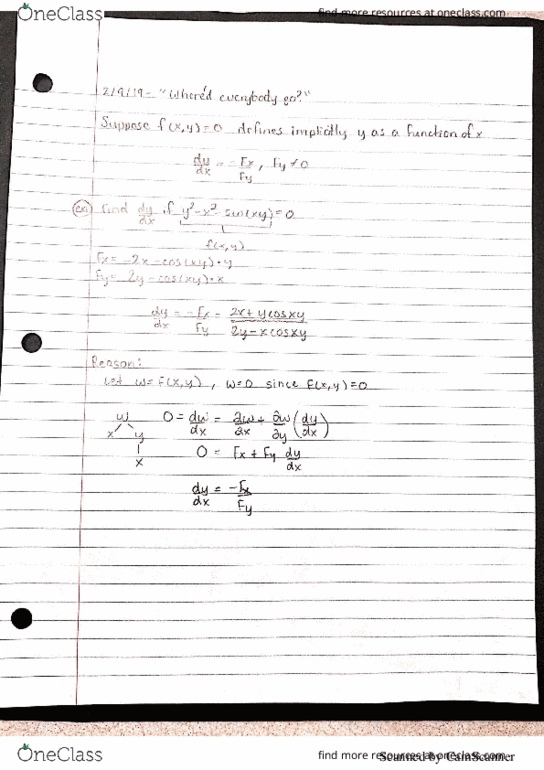 OneClass
find more resources at oneclass.com
2/9/19- "Where'd everybody go?"
Suppose f(x,y)=0 defines implicitly y as a function of x
dy/dx = -Fx/Fy, Fy≠0
ex) Find dy/dx if y²-x²-sin(xy)=0
f(x,y)
Fx= -2x-cos(xy)·y
Fy= 2y-cos(xy)·x
dy/dx = -Fx/Fy = 2x+ycosxy/2y-xcosxy
Reason:
Let w=F(x,y), w=0 since F(x,y)=0
w 0=dw/dx = ∂w/∂x + ∂w/∂y (dy/dx)
x y
x 0 = Fx + Fy dy/dx
dy/dx = -Fx/Fy
OneClass
find more resources at oneclass.com
Scanned by CamScanner